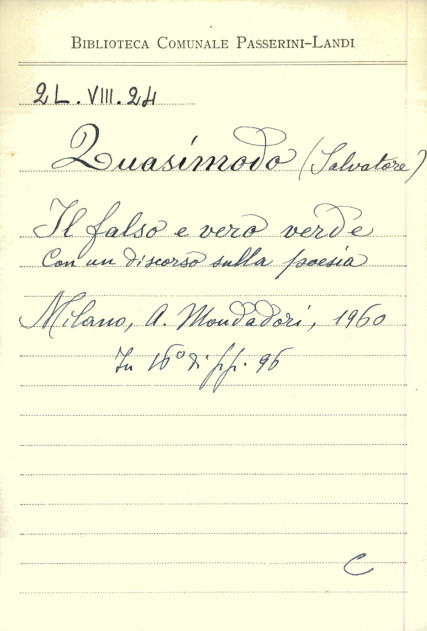 BIBLIOTECA COMUNALE PASSERINI-LANDI
2L. VIII. 24
Quasimodo (Salvatore)
Il falso e vero verde
Con un discorso sulla poesia
Milano, A. Mondadori, 1960
In 16° di pp. 96
C